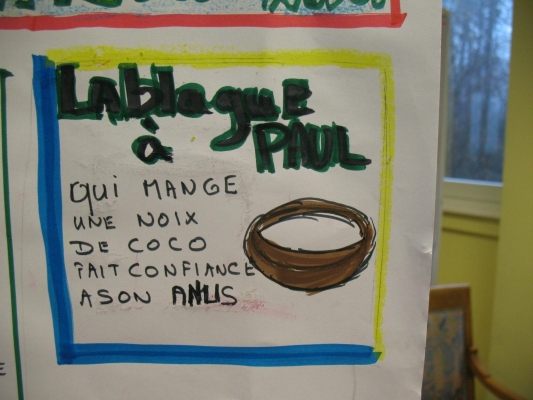 LAblague
à PAUL
QUI MANGE
UNE NOIX
DE COCO
FAIT CONFIANCE
A SON ANUS